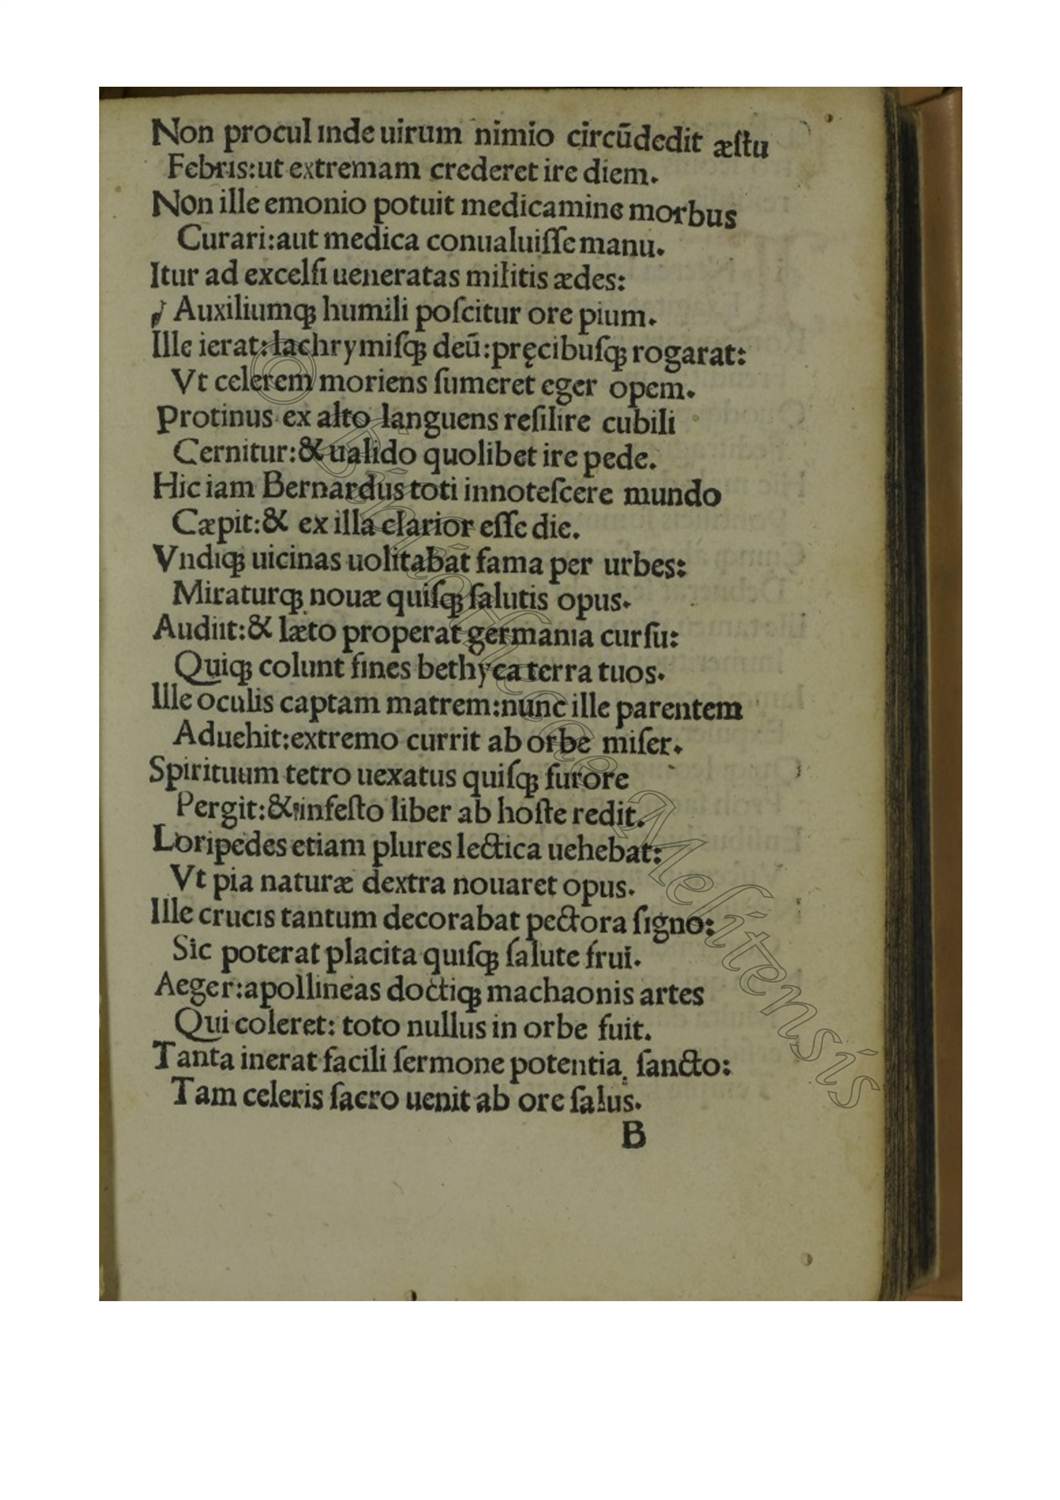 Non procul inde uirum nimio circūdedit æſtu
Febris:ut extremam crederet ire diem.
Non ille emonio potuit medicamine morbus
Curari:aut medica conualuiſſe manu.
Itur ad excelſi ueneratas militis ædes:
Auxiliumqꝫ humili poſcitur ore pium.
Ille ierat:lachrymiſqꝫ deū:pręcibuſqꝫ rogarat:
Vt celerem moriens ſumeret eger opem.
Protinus ex alto languens reſilire cubili
Cernitur:& ualido quolibet ire pede.
Hic iam Bernardus toti innoteſcere mundo
Cæpit:& ex illa clarior eſſe die.
Vndiqꝫ uicinas uolitabat fama per urbes:
Miraturqꝫ nouæ quiſqꝫ ſalutis opus.
Audiit:& læto properat germania curſu:
Quiqꝫ colunt fines bethyca terra tuos.
Ille oculis captam matrem:nunc ille parentem
Aduehit:extremo currit ab orbe miſer.
Spirituum tetro uexatus quiſqꝫ furore
Pergit:& infeſto liber ab hoſte redit.
Loripedes etiam plures lectica uehebat:
Vt pia naturæ dextra nouaret opus.
Ille crucis tantum decorabat pectora ſigno:
Sic poterat placita quiſqꝫ ſalute frui.
Aeger:apollineas doctiqꝫ machaonis artes
Qui coleret: toto nullus in orbe fuit.
Tanta inerat facili ſermone potentia ſancto:
Tam celeris ſacro uenit ab ore ſalus.
B
© Bibliothecae Melitensis